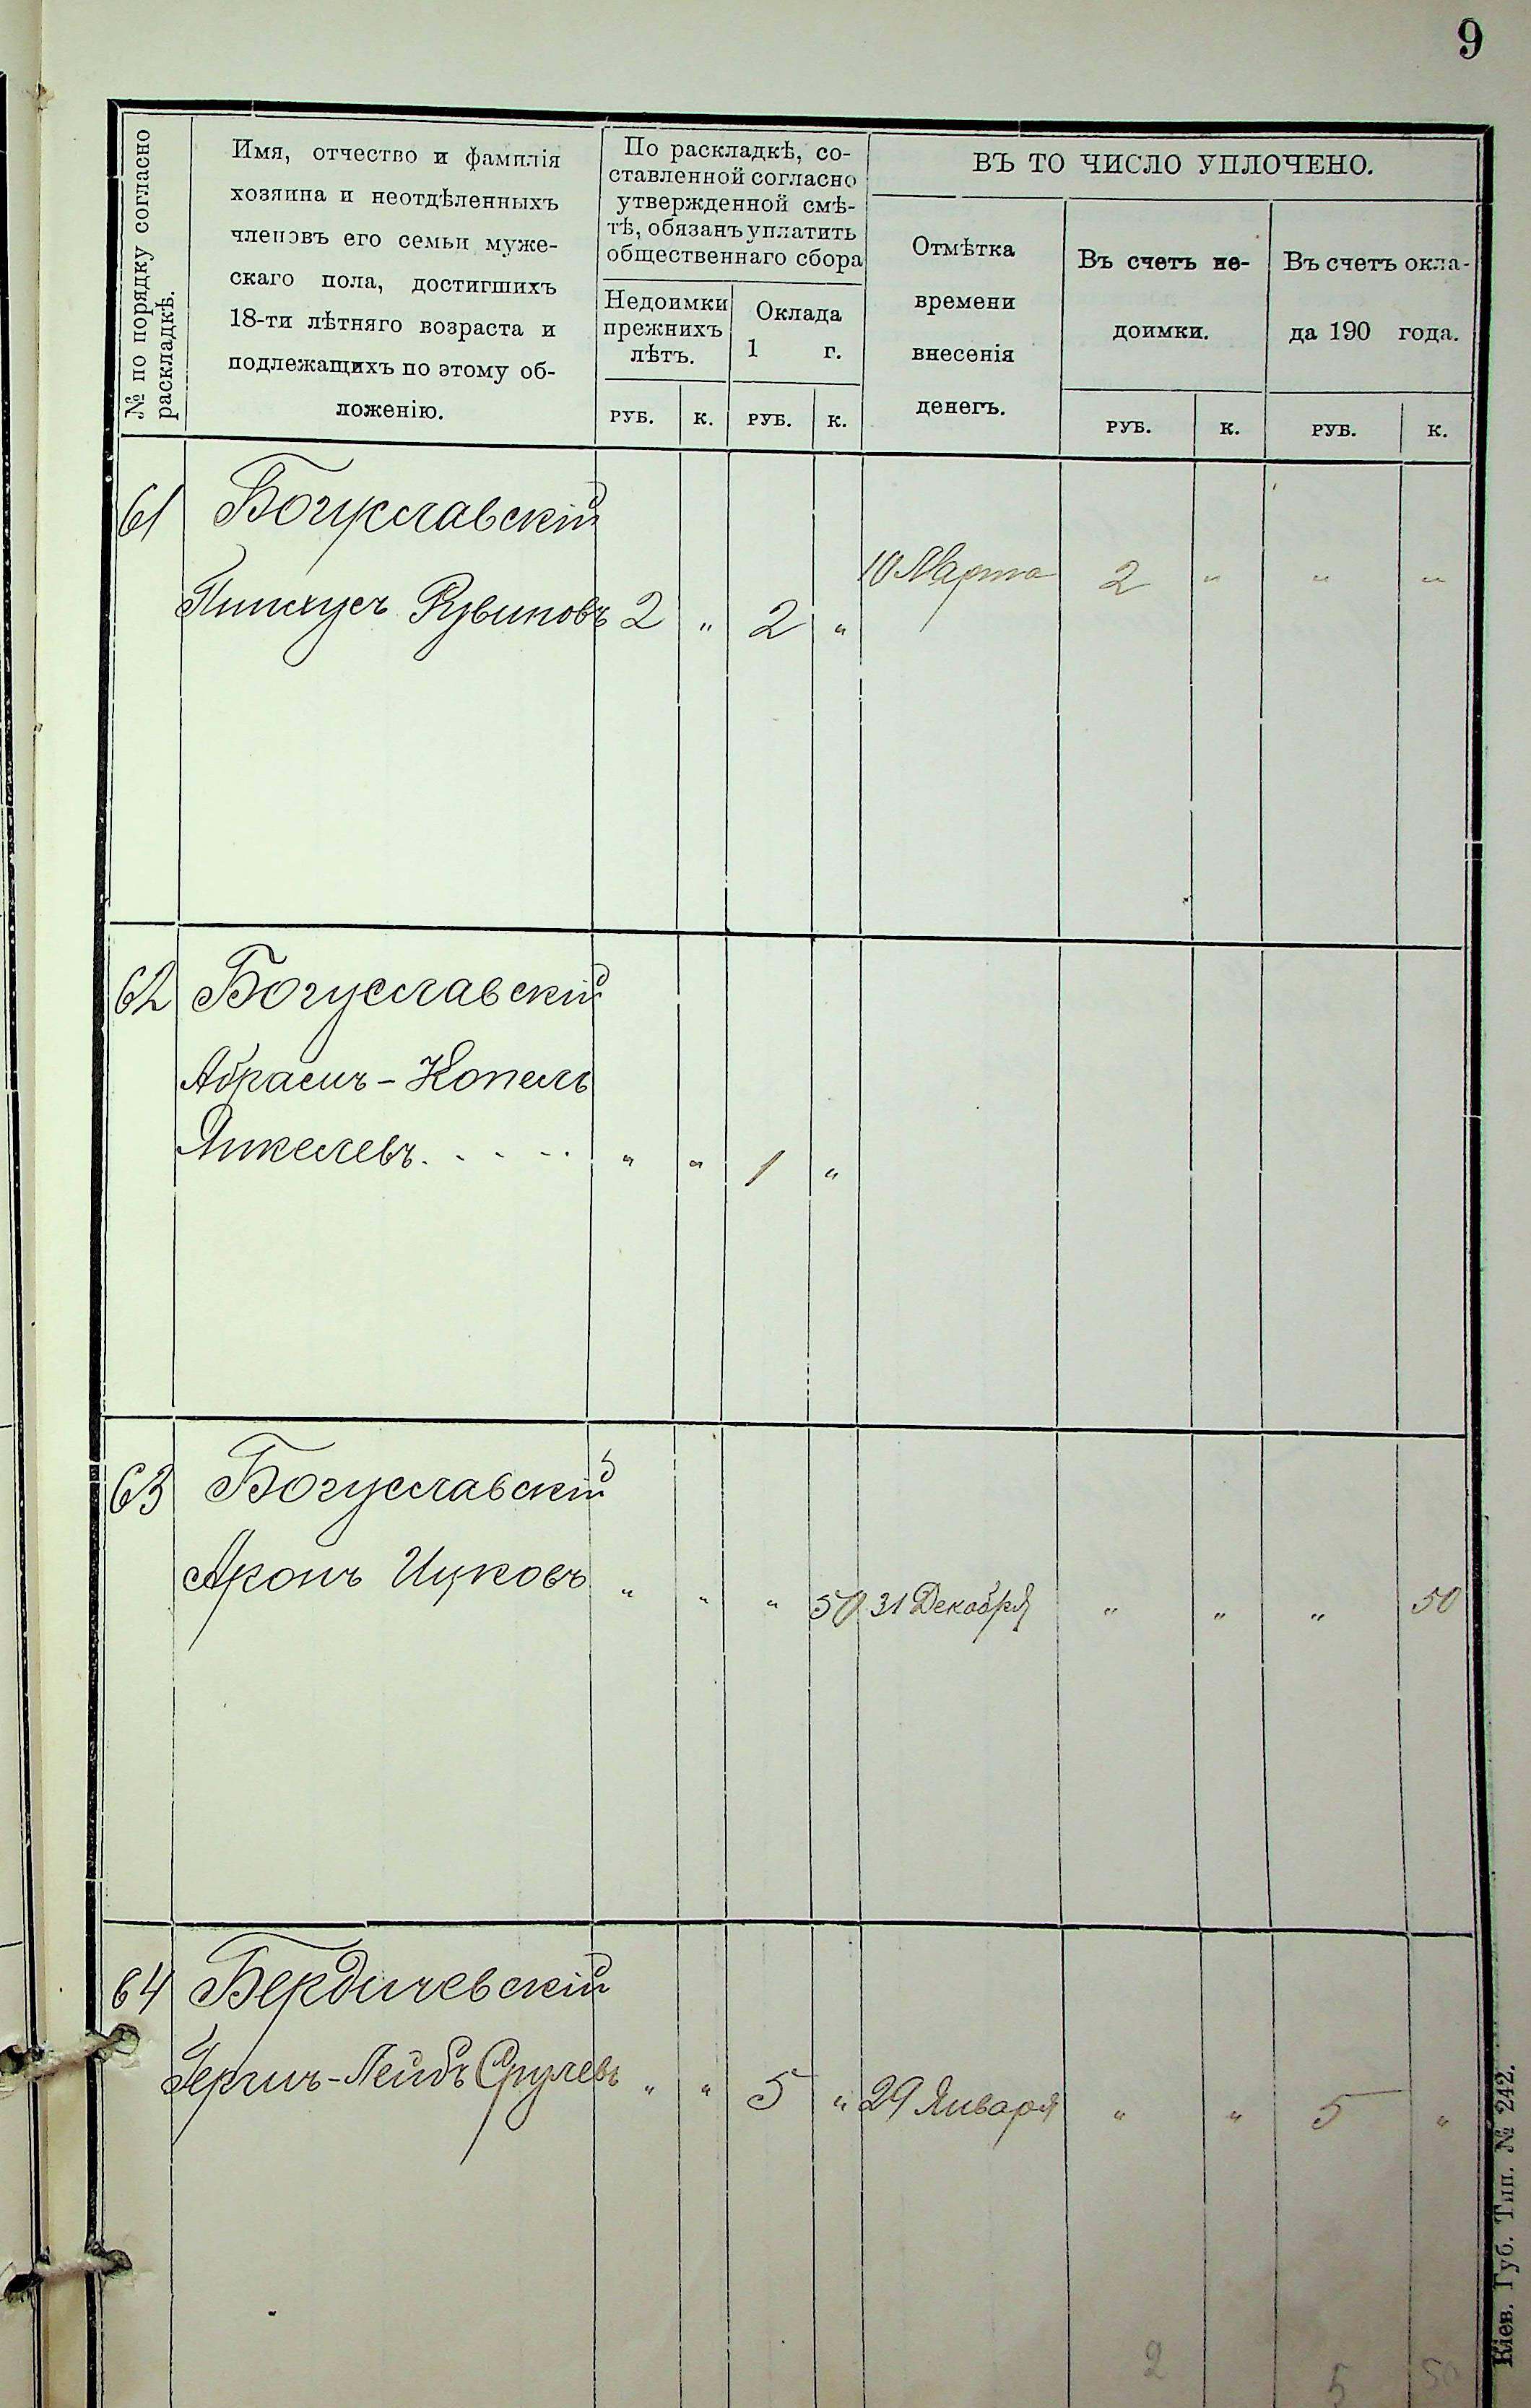 9
№ по порядку согласно
раскладкѣ.
Имя, отчество и фамилія
хозяина и неотдѣленныхъ
членовъ его семьи муже-
скаго пола, достигшихъ
18-ти лѣтняго возраста и
подлежащихъ по этому об-
ложенію.
По раскладкѣ, со-
ставленной согласно
утвержденной смѣ-
тѣ, обязанъ уплатить
общественнаго сбора
Недоимки
прежнихъ
лѣтъ.
Оклада
1 г.
РУБ. К. РУБ. К.
ВЪ ТО ЧИСЛО УПЛОЧЕНО.
Отмѣтка
времени
внесенія
денегъ.
Въ счетъ не-
доимки.
Въ счетъ окла-
да 190 года.
РУБ. К. РУБ. К.
61 Богуславскій
Пинхусъ Рувиновъ 2 " 2 " 10 Марта 2 " " "
62 Богуславскій
Абрамъ-Копель
Янкелевъ. . . . . " " 1 "
63 Богуславскій
Аронъ Ицковъ " " " 50 31 Декабря " " " 50
64 Бердичевскій
Гершъ-Лейбъ Срулевъ " " 5 " 29 Января " " 5 "
2 5 50
Кіев. Губ. Тип. № 242.